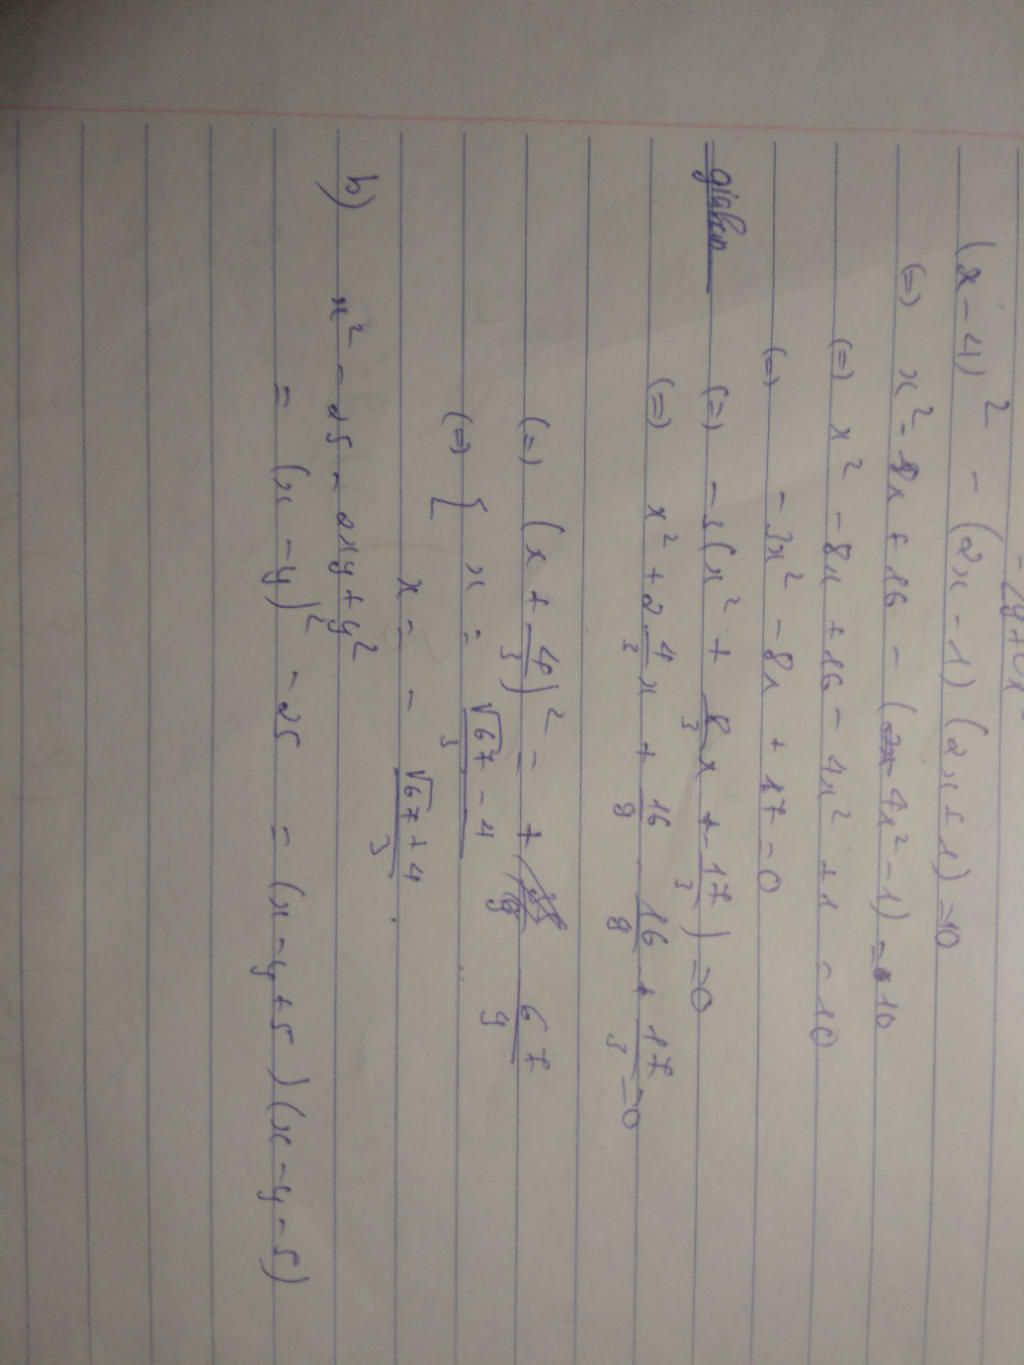 (x-4)² - (2x-1)(2x+1)=10
(=) x²-8x+16 - (4x²-1)=10
(=) x²-8x+16-4x²+1=10
(=) -3x²-8x+17=0
(=) -3(x²+8/3x+17/3)=0
(=) x²+2 4/3x+16/9-16/9+17/3=0
(=) (x+4/3)²=+67/9
(=) [ x=√67-4/3
x=-√67+4/3.
b) x²-25-2xy+y²
= (x-y)²-25 = (x-y+5)(x-y-5)